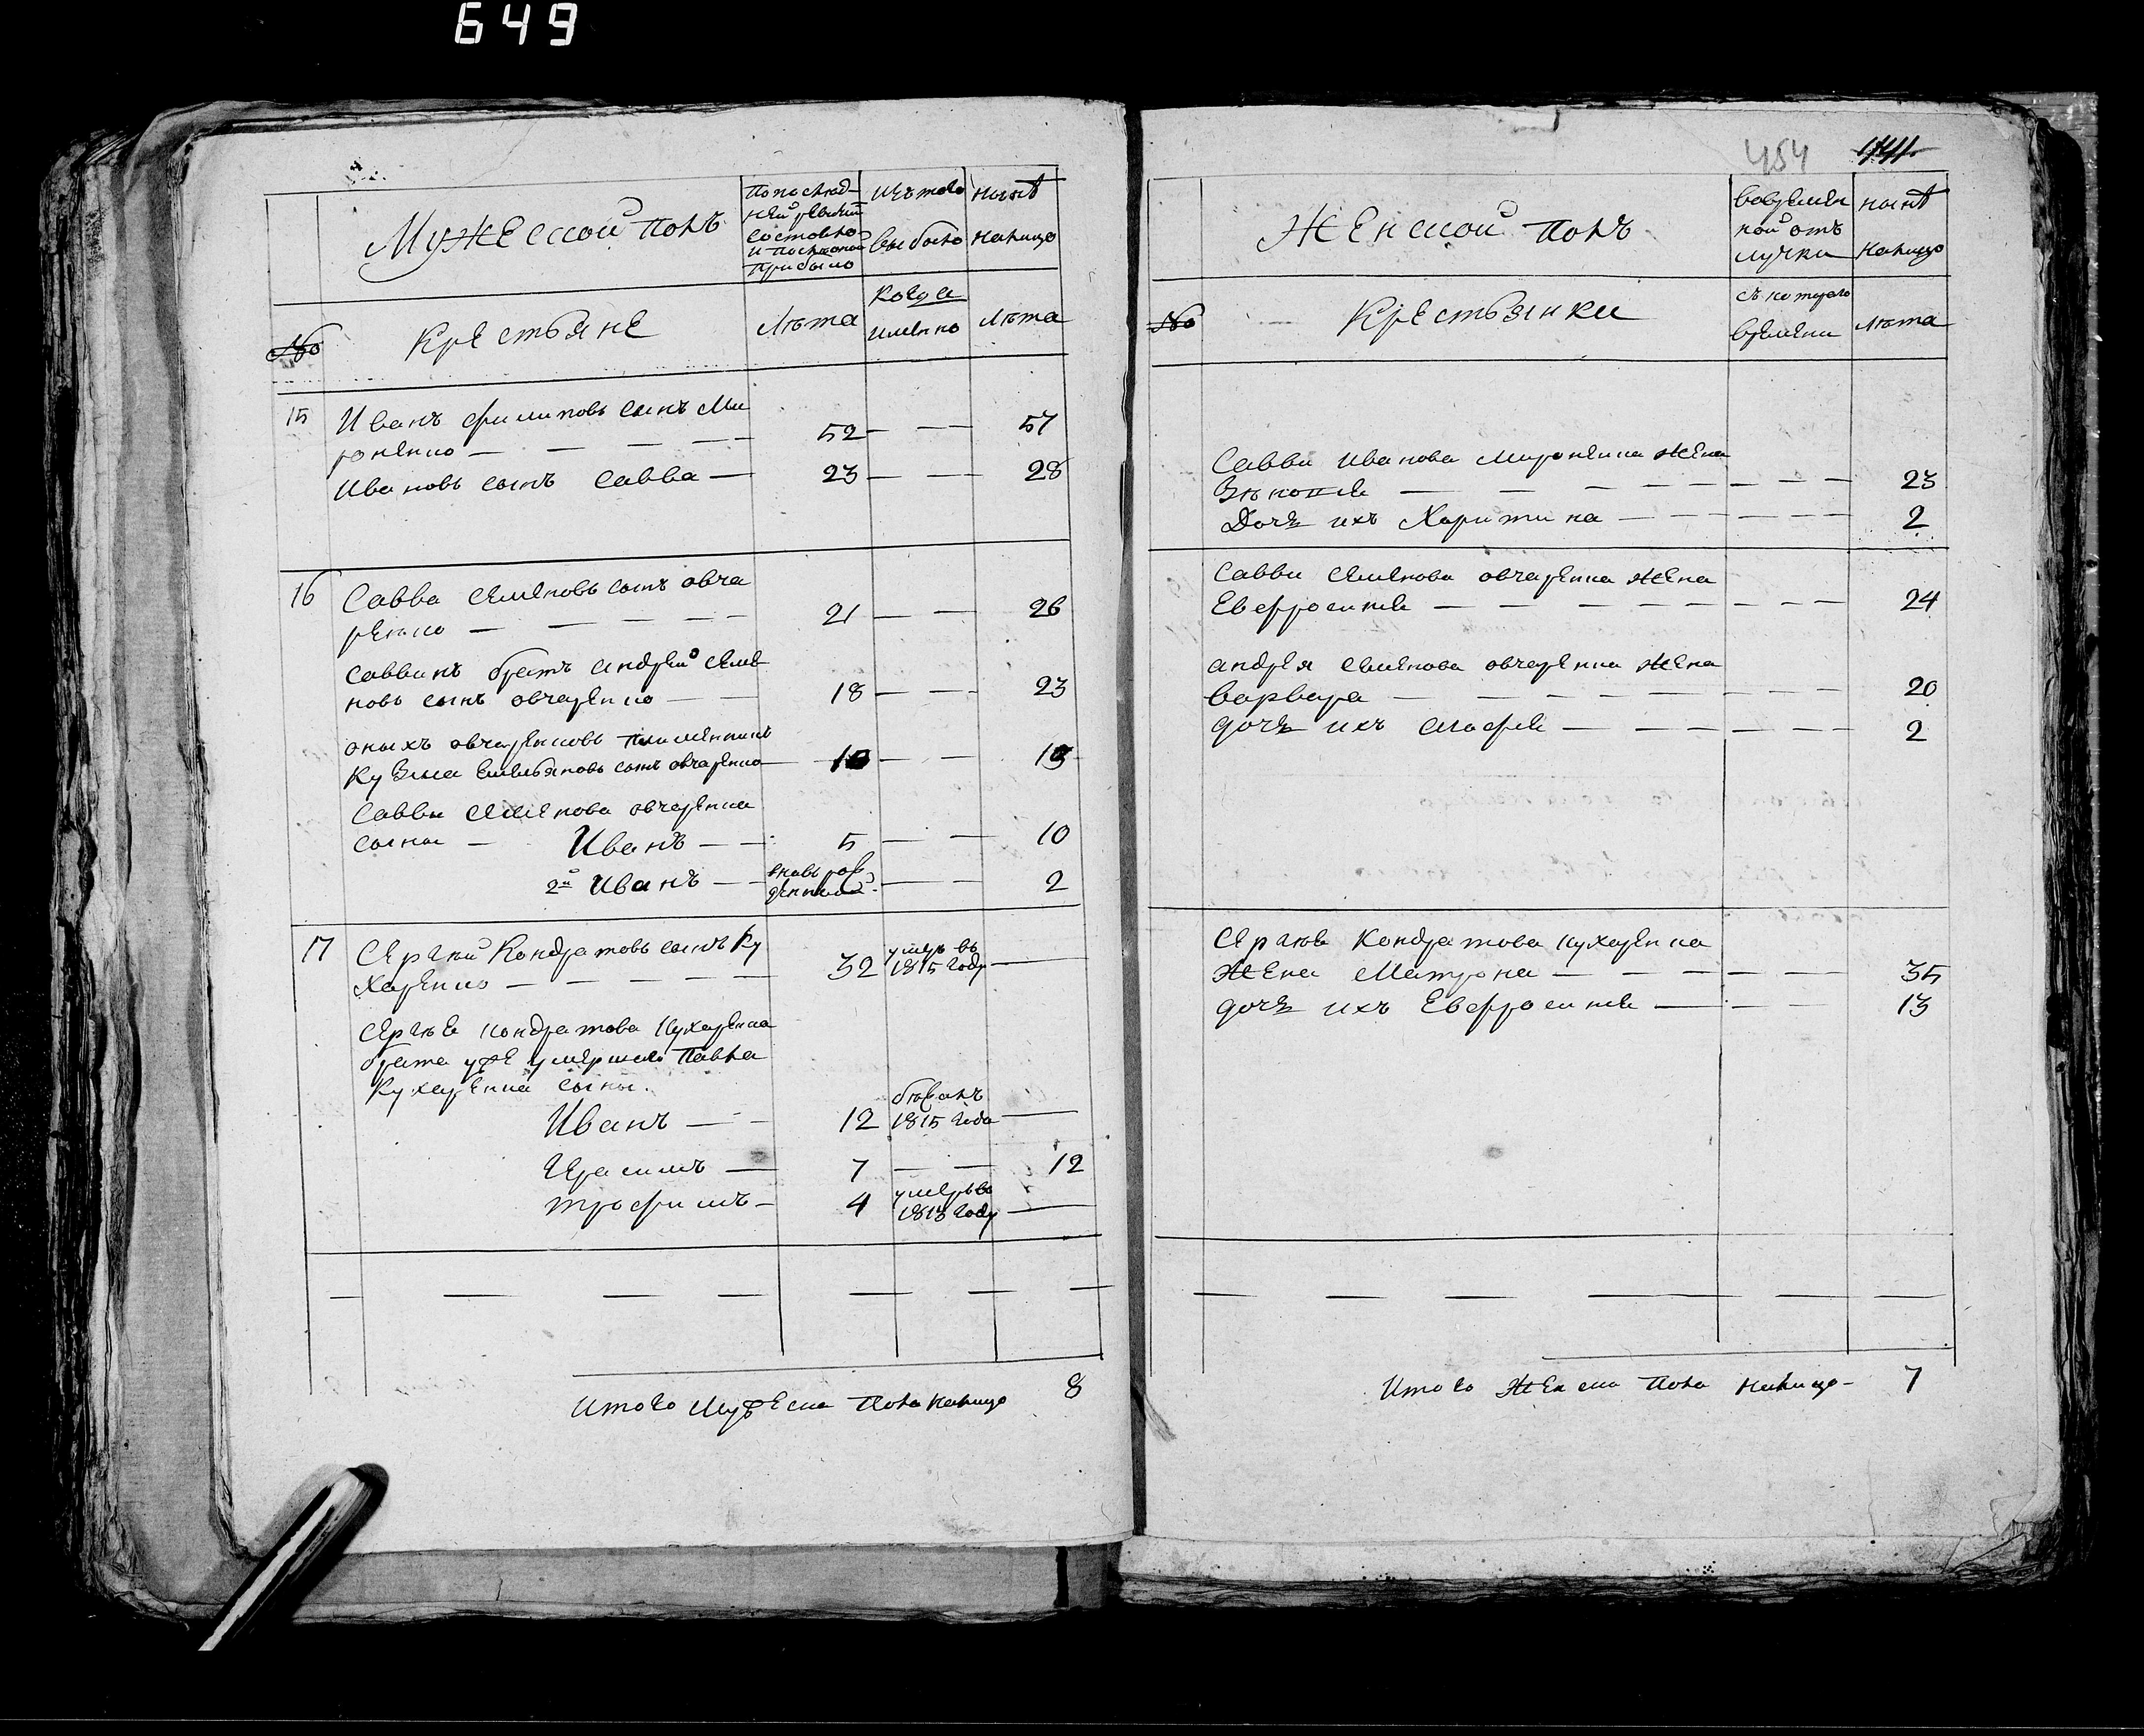 649
Мужеской полъ
По послѣд-
ней ревизiи
состояло
и послѣ оной
прибыло
Изъ того
выбыло
Нынѣ
на лицо
№
Крестьяне
Лѣта
Когда
имянно
Лѣта
15
Иванъ Филиповъ сынъ Ми
роненко — — — —
52 — — 57
Ивановъ сынъ Савва —
23 — — 28
16
Савва Семеновъ сынъ Овча
ренко — — — —
21 — — 26
Саввинъ братъ Андрей Семе
новъ сынъ Овчаренко — —
18 — — 23
Оныхъ Овчаренковъ племенникъ
Кузма Емельяновъ сынъ Овчаренко —
10 — — 15
Саввы Семенова Овчаренка
сыны — Иванъ — —
5 — — 10
2й Иванъ — —
вновь рож
денный
— — 2
17
Сергей Кондратовъ сынъ Ку
харенко — — — —
32
умеръ въ
1815 году —
Сергѣя Кондратова Кухаренка
брата уже умершаго Павла
Кухаренка сыны.
Иванъ — —
12
бѣжалъ
1815 года —
Герасимъ —
7 — — 12
Трофимъ —
4
умеръ въ
1813 году —
Итого Мужеска пола налицо 8
454 1141.
Женской полъ
Во времен
ной отъ
лучки
Нынѣ
налицо
№
Крестьянки
Съ котораго
времени
Лѣта
Саввы Иванова Мироненка жена
Зѣновiя — — — — — — — 23
Дочь ихъ Харитина — — — — — 2
Саввы Семенова Овчаренка жена
Евфросинiя — — — — — — — 24
Андрея Семенова Овчаренка жена
Варвара — — — — — — — 20
дочь ихъ Агафiя — — — — — — 2
Сергѣя Кондратова Кухаренка
жена Матрона — — — — — — 35
дочь ихъ Евфросинiя — — — 13
Итого женска пола налицо — 7